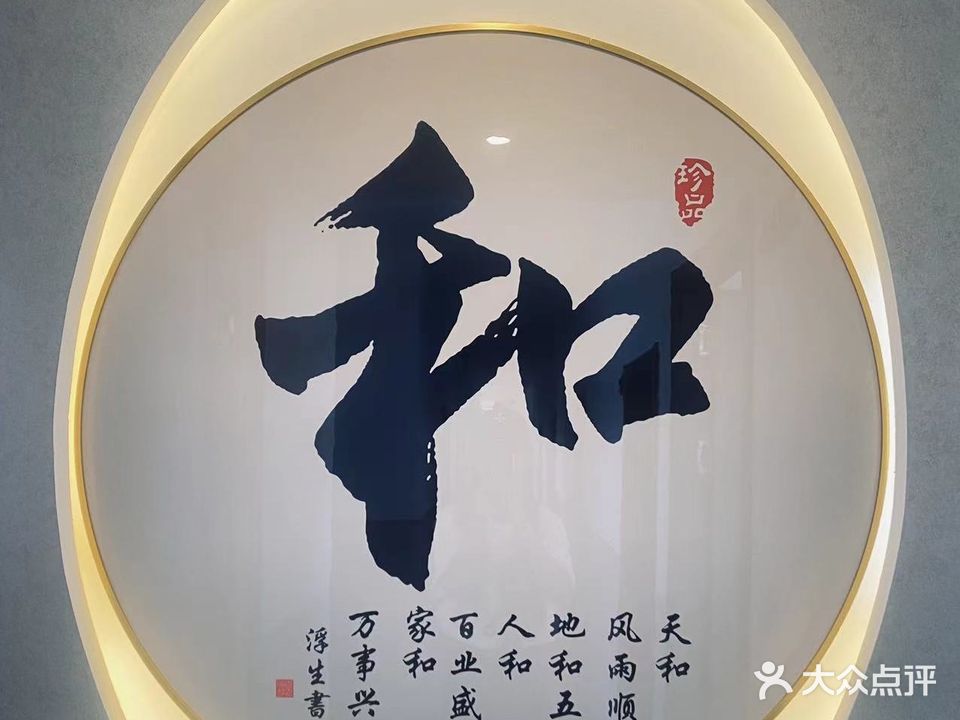 和
珍品
天和
风雨顺
地和五
人和
百业盛
家和
万事兴
浮生書
大众点评